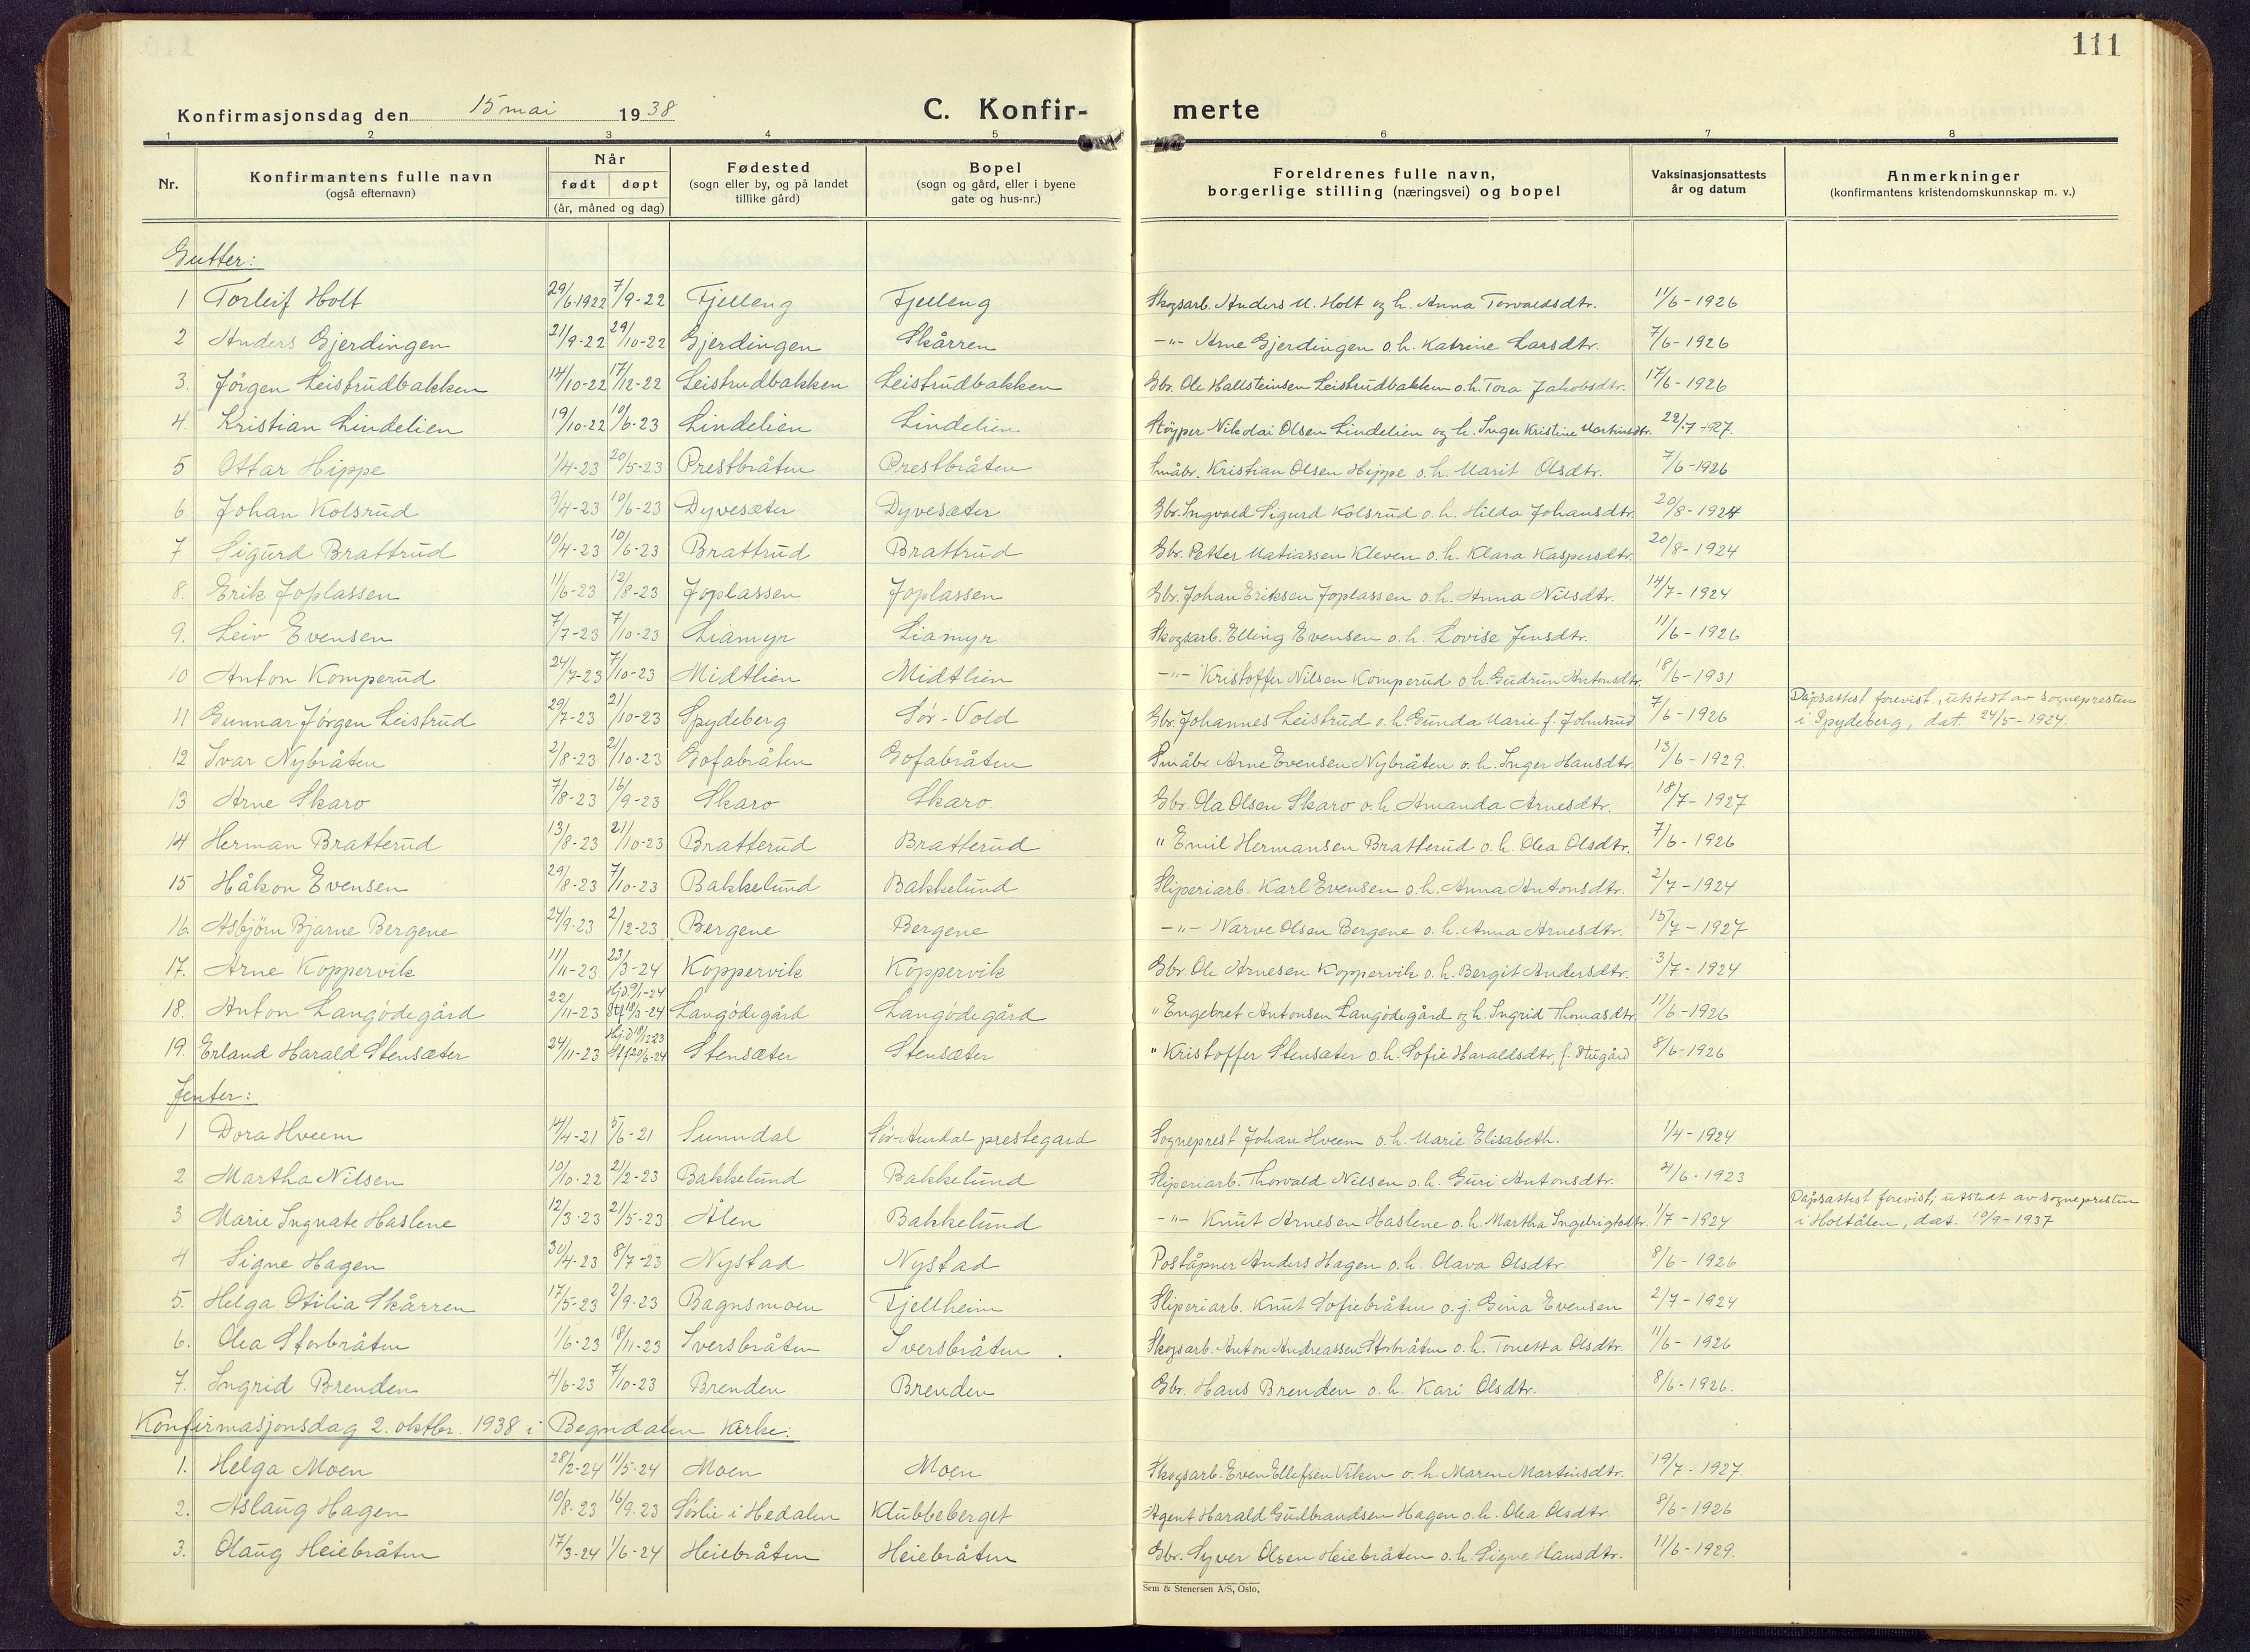 111
Konfirmasjonsdag den 15 mai 1938 C. Konfir- merte
1 2 3 4 5 6 7 8
Nr. Konfirmantens fulle navn (også efternavn) Når født døpt (år, måned og dag) Fødested (sogn eller by, og på landet tillike gård) Bopel (sogn og gård, eller i byene gate og hus-nr.) Foreldrenes fulle navn, borgerlige stilling (næringsvei) og bopel Vaksinasjonsattests år og datum Anmerkninger (konfirmantens kristendomskunnskap m. v.)
Gutter:
1 Torleif Holt 29/6 1922 7/9-22 Fjelleng Fjelleng Skogsarb. Anders M. Holt og h. Anna Torvaldsdtr. 11/6-1926
2 Anders Gjerdingen 21/9-22 29/10-22 Gjerdingen Skårren -"- Arne Gjerdingen o.h. Katrine Larsdtr. 7/6-1926
3. Jörgen Leistrudbakken 14/10-22 17/12-22 Leistrudbakken Leistrudbakken Gbr. Ole Hallsteinsen Leistrudbakken o.h. Tora Jakobsdtr. 17/6-1926
4. Kristian Lindelien 19/10-22 10/6-23 Lindelien Lindelien Nikolai Olsen Lindelien og h. Inger Kristine Martinsdtr. 22/7-1927.
5 Ottar Hippe 1/4-23 20/5-23 Prestbråten Prestbråten Småbr. Kristian Olsen Hippe o.h. Marit Olsdtr. 7/6-1926
6. Johan Kolsrud 9/4-23 10/6-23 Dyvesæter Dyvesæter Gbr. Ingvald Sigurd Kolsrud o.h. Hilda Johansdtr. 20/8-1924
7 Sigurd Brattrud 10/4-23 10/6-23 Brattrud Brattrud Gbr. Petter Matiassen Kleven o.h. Klara Kaspersdtr. 20/8-1924
8. Erik Joplassen 11/6-23 12/8-23 Joplassen Joplassen Gbr. Johan Eriksen Joplassen o.h. Anna Nilsdtr. 14/7-1924
9. Leiv Evensen 7/7-23 7/10-23 Liamyr Liamyr Skogsarb. Elling Evensen o.h. Lovise Jensdtr. 11/6-1926
10 Anton Komperud 24/7-23 7/10-23 Midtlien Midtlien -"- Kristoffer Nilsen Komperud o.h. Gudrun Antonsdtr. 18/6-1931
11 Gunnar Jörgen Leistrud 29/7-23 21/10-23 Spydeberg Sør-Vold Gbr. Johannes Leistrud o.h. Gunda Marie f. Johnsrud 7/6-1926 Dåpsattest forevist, utstedt av sognepresten i Spydeberg, dat. 24/5-1924.
12 Ivar Nybråten 2/8-23 21/10-23 Gofabråten Gofabråten Småbr. Arne Evensen Nybråten o.h. Inger Hansdtr. 13/6-1929.
13 Arne Skaro 7/8-23 16/9-23 Skaro Skaro. Gbr. Ola Olsen Skaro o.h. Amanda Arnesdtr. 18/7-1927
14 Herman Bratterud 13/8-23 21/10-23 Bratterud Bratterud " Emil Hermansen Bratterud o.h. Olea Olsdtr. 7/6-1926
15 Håkon Evensen 29/8-23 7/10-23 Bakkelund Bakkelund Sliperiarb. Karl Evensen o.h. Anna Antonsdtr. 2/7-1924
16. Asbjörn Bjarne Bergene 24/9-23 2/12-23 Bergene Bergene -"- Narve Olsen Bergene o.h. Anna Arnesdtr. 15/7-1927
17. Arne Koppervik 11/11-23 23/3-24 Koppervik Koppervik Gbr. Ole Arnesen Koppervik o.h. Bergit Andersdtr. 3/7-1924
18. Anton Langödegård 22/11-23 Hj.D. 9/1-24 Stf 18/3-24 Langödegård Langödegård " Engebret Antonsen Langödegård og h. Ingrid Thomasdtr. 17/6-1926
19. Erland Harald Stensæter 24/11-23 Hj.D 19/12 23 Stf 20/6-24 Stensæter Stensæter " Kristoffer Stensæter o.h. Sofie Haraldsdtr, f. 8/6-1926
Jenter:
1 Dora Hveem 14/4-21 5/6-21 Sunndal Sør-Aurdal prestegard Sogneprest Johan Hveem o.h. Marie Elisabeth. 1/4-1924
2 Martha Nilsen 10/10-22 21/2-23 Bakkelund Bakkelund Sliperiarb. Thorvald Nilsen o.h. Guri Antonsdtr. 4/6-1923
3 Marie Ingvate Haslene 12/3-23 21/5-23 Ålen Bakkelund -"- Knut Arnesen Haslene o.h. Martha Ingebrigtsdtr. 1/7-1924 Dåpsattest forevist, utstedt av sognepresten i Holtålen, dat. 10/9-1937
4 Signe Hagen 30/4-23 8/7-23 Nystad Nystad Poståpner Anders Hagen o.h. Olava Olsdtr. 8/6-1926
5. Helga Otilia Skårren 17/5-23 2/9-23 Bagnsmoen Fjellheim Sliperiarb. Knut Sofiebråten o.j. Gina Evensen 2/7-1924
6. Olea Storbråten 1/6-23 18/11-23 Iversbråten Iversbråten Skogsarb. Anton Andreassen Storbråten o.h. Tonetta Olsdtr. 11/6-1926
7. Ingrid Brenden 4/6-23 7/10-23 Brenden Brenden Gbr. Hans Brenden o.h. Kari Olsdtr. 8/6-1926.
Konfirmasjonsdag 2. oktbr. 1938 i Begndalen kirke:
1. Helga Moen 28/2-24 11/5-24 Moen Moen Skogsarb. Even Ellefsen Viken o.h. Maren Martinsdtr. 19/7-1927.
2. Aslaug Hagen 10/8-23 16/9-23 Sørlie i Hedalen Klubbeberget Agent Harald Gudbrandsen Hagen o.h. Olea Olsdtr. 8/6-1926
3. Olaug Heiebråten 17/3-24 1/6-24 Heiebråten Heiebråten Gbr. Syver Olsen Heiebråten o.h. Signe Hansdtr. 11/6-1929.
Sem & Stenersen A/S, Oslo.